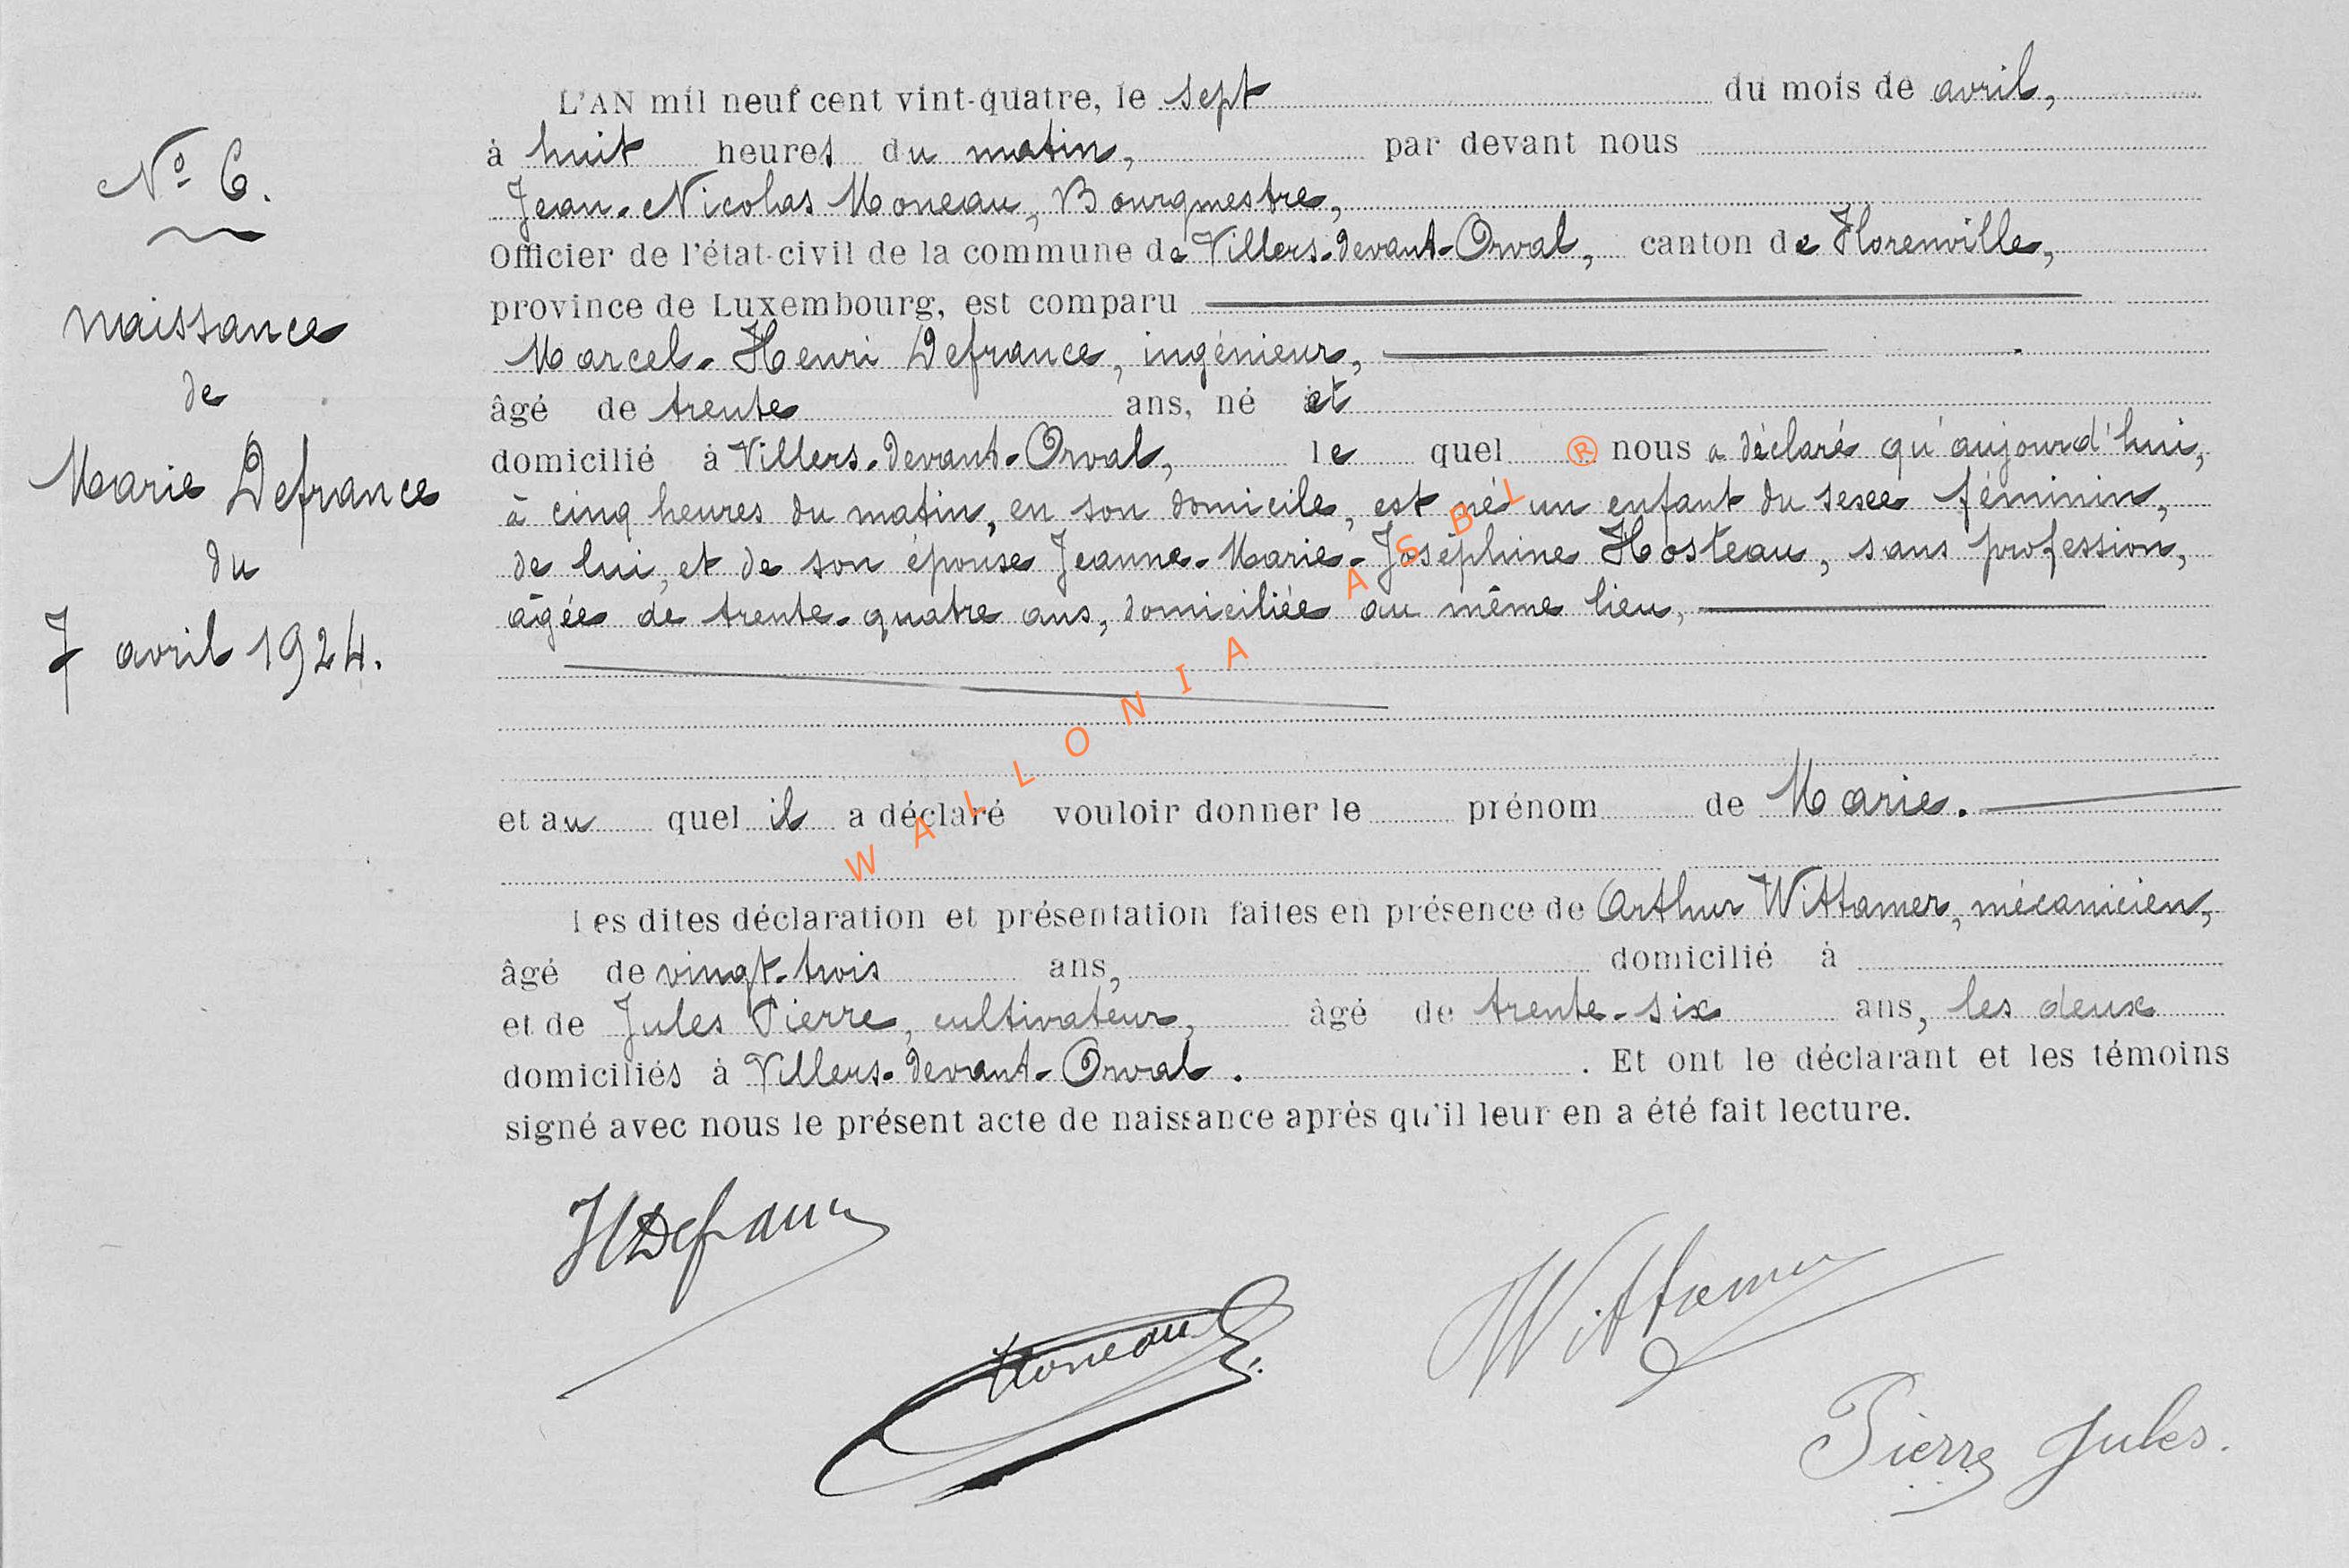 N° 6.
naissance
de
Marie Defrance
du
7 avril 1924.
L'AN mil neuf cent vint-quatre, le sept du mois de avril,
à huit heures du matin, par devant nous
Jean-Nicolas Moneau, Bourgmestre,
Officier de l'état-civil de la commune de Villers-devant-Orval, canton de Florenville,
province de Luxembourg, est comparu
Marcel-Henri Defrance, ingénieur,
âgé de trente ans, né et
domicilié à Villers-devant-Orval, le quel ® nous a déclaré qu'aujourd'hui,
à cinq heures du matin, en son domicile, est né un enfant du sexe féminin,
de lui, et de son épouse Jeanne-Marie-Joséphine Hosteau, sans profession,
âgée de trente-quatre ans, domiciliée au même lieu,
WALLONIA ASBL
et au quel il a déclaré vouloir donner le prénom de Marie.
Les dites déclaration et présentation faites en présence de Arthur Wittamer, mécanicien,
âgé de vingt-trois ans, domicilié à
et de Jules Pierre, cultivateur, âgé de trente-six ans, les deux
domiciliés à Villers-devant-Orval. . Et ont le déclarant et les témoins
signé avec nous le présent acte de naissance après qu'il leur en a été fait lecture.
HDefrance
Moneau
Wittamer
Pierre Jules.